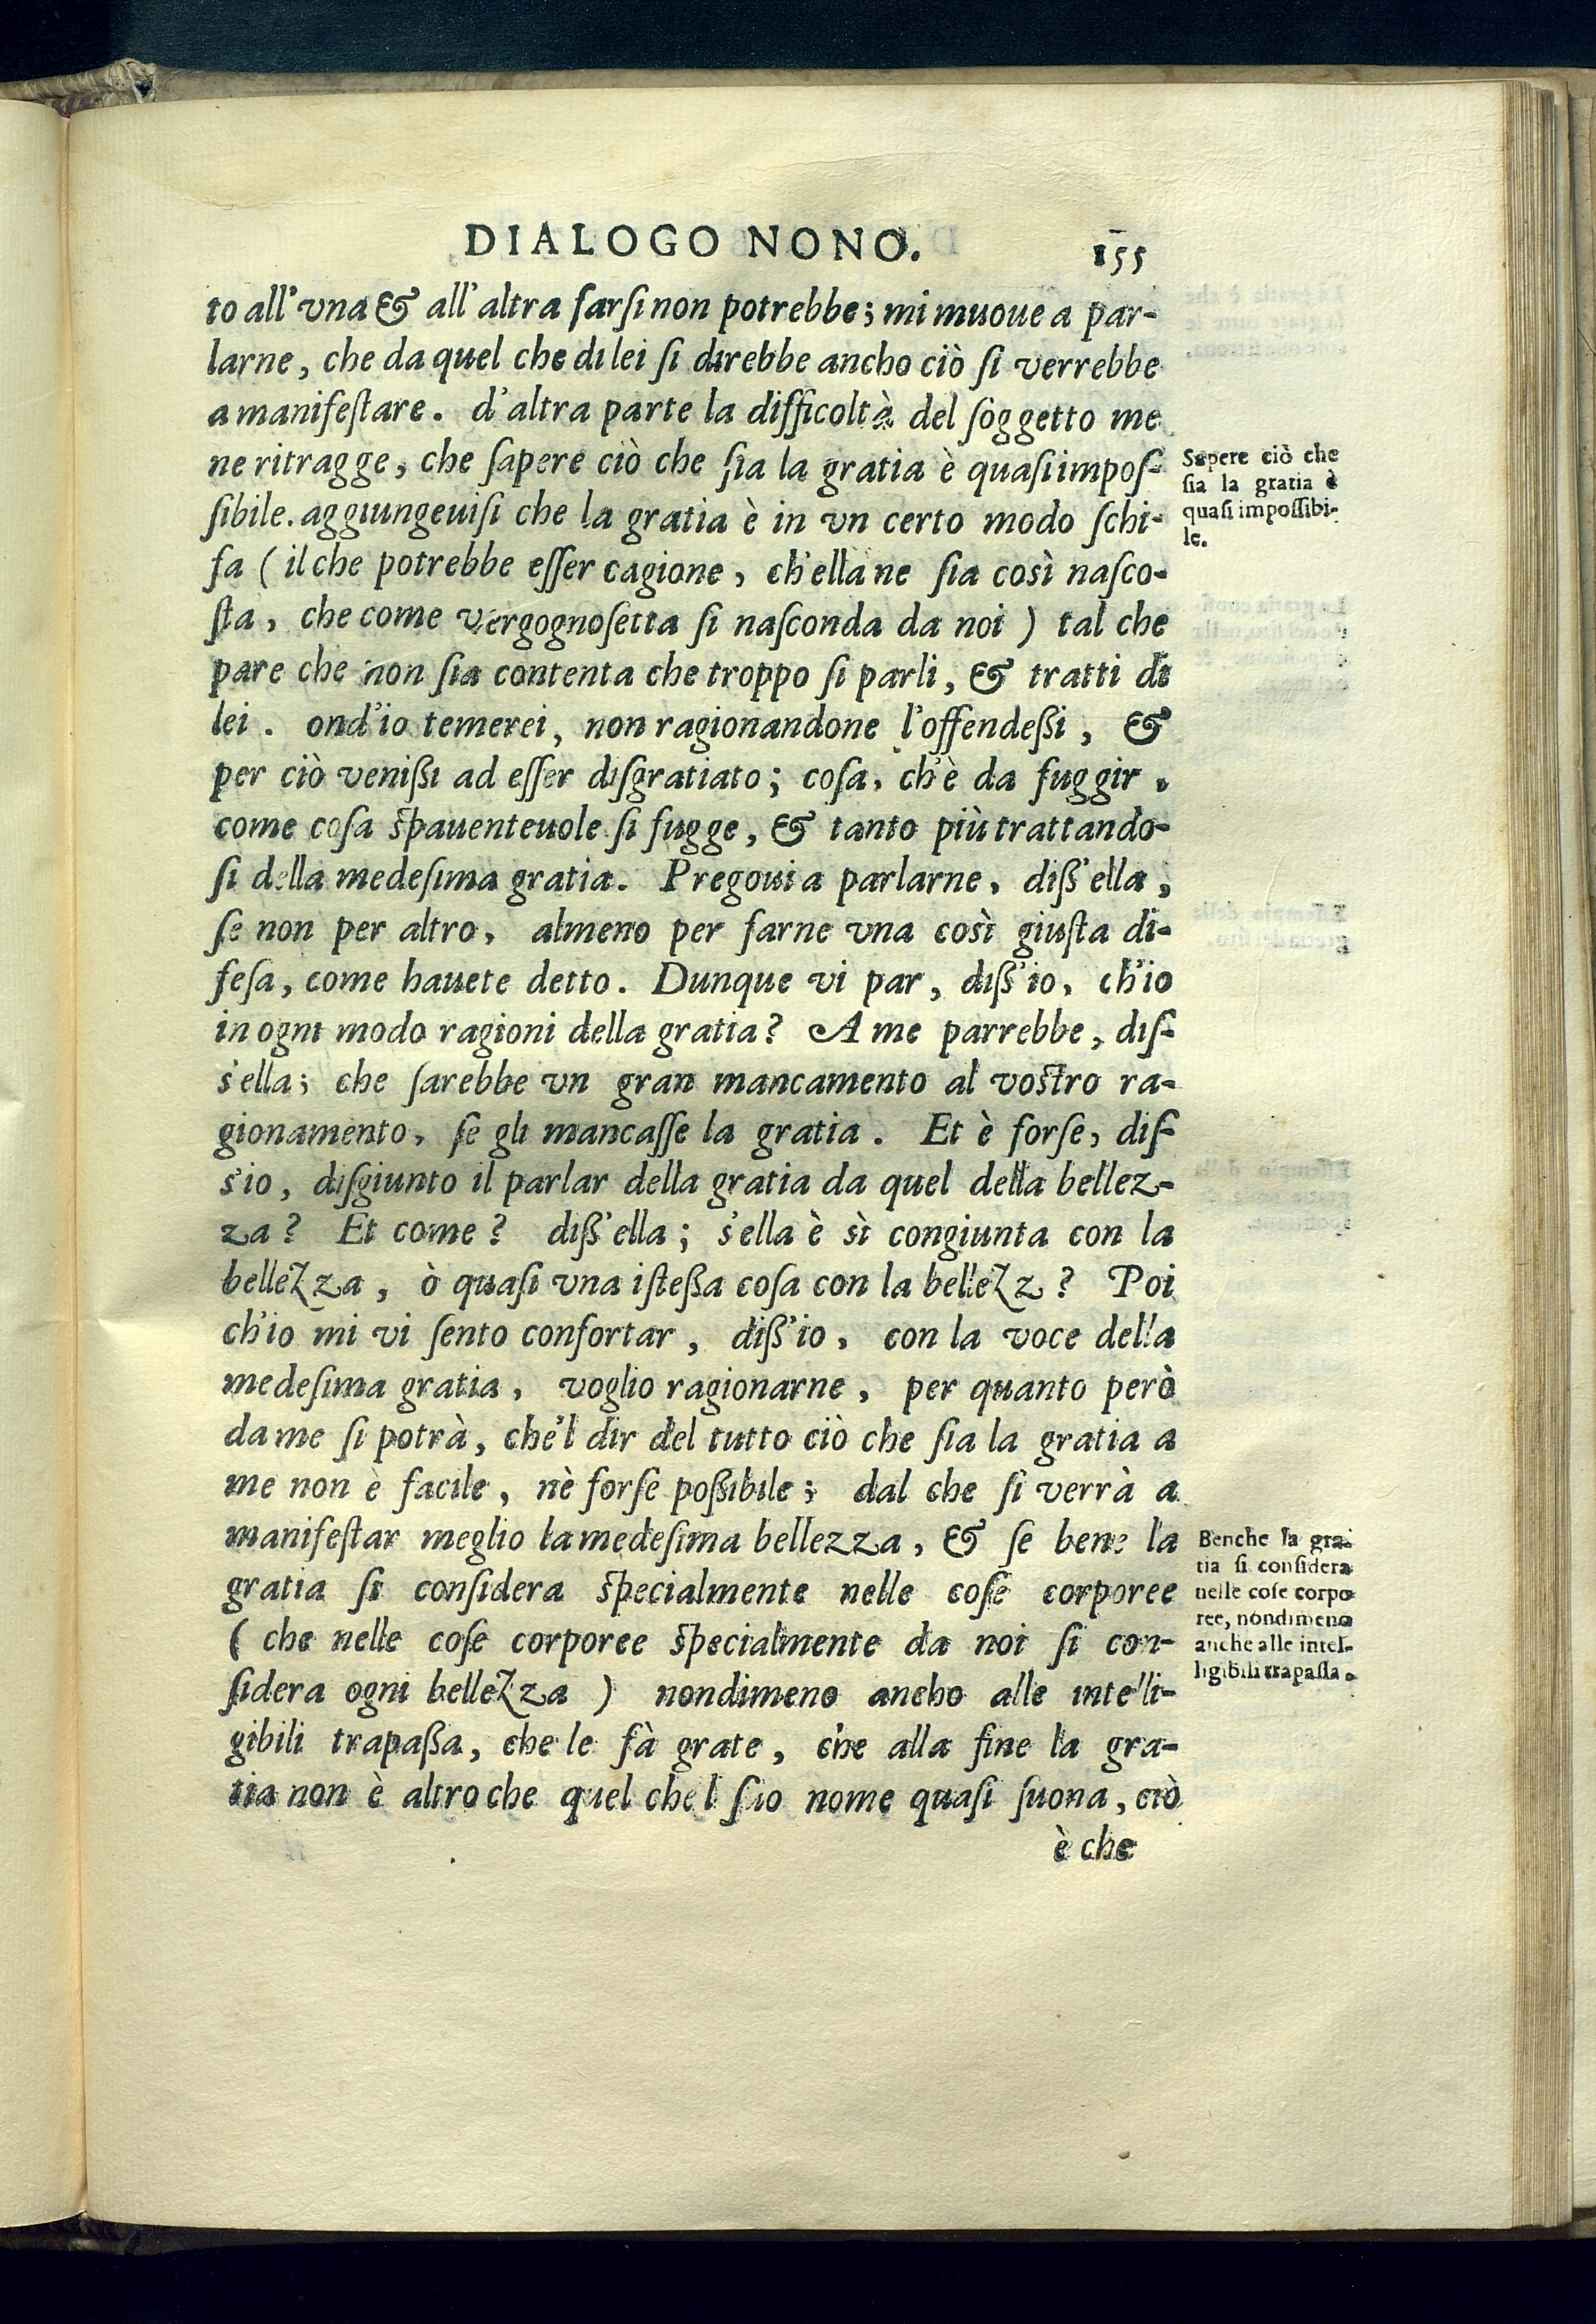 DIALOGO NONO. 155
to all'vna & all'altra farſi non potrebbe; mi muoue a par-
larne, che da quel che di lei ſi direbbe ancho ciò ſi verrebbe
a manifeſtare. d'altra parte la difficoltà del ſoggetto me
ne ritragge, che ſapere ciò che ſia la gratia è quaſi impoſ-
ſibile. aggiungeuiſi che la gratia è in vn certo modo ſchi-
fa (il che potrebbe eſſer cagione, ch'ella ne ſia così naſco-
ſta, che come vergognoſetta ſi naſconda da noi) tal che
pare che non ſia contenta che troppo ſi parli, & tratti di
lei. ond'io temerei, non ragionandone l'offendeßi, &
per ciò venißi ad eſſer diſgratiato; coſa, ch'è da fuggir,
come coſa ſpauenteuole ſi fugge, & tanto più trattando-
ſi della medeſima gratia. Pregoui a parlarne, diß'ella,
ſe non per altro, almeno per farne vna così giuſta di-
feſa, come hauete detto. Dunque vi par, diß'io, ch'io
in ogni modo ragioni della gratia? A me parrebbe, diſ-
s'ella; che ſarebbe vn gran mancamento al voſtro ra-
gionamento, ſe gli mancaſſe la gratia. Et è forſe, diſ-
s'io, diſgiunto il parlar della gratia da quel della bellez-
za? Et come? diß'ella; s'ella è sì congiunta con la
bellezza, ò quaſi vna iſteßa coſa con la bellezz? Poi
ch'io mi vi ſento confortar, diß'io, con la voce della
medeſima gratia, voglio ragionarne, per quanto però
da me ſi potrà, che'l dir del tutto ciò che ſia la gratia a
me non è facile, nè forſe poßibile; dal che ſi verrà a
manifeſtar meglio la medeſima bellezza, & ſe bene la
gratia ſi conſidera ſpecialmente nelle coſe corporee
(che nelle coſe corporee ſpecialmente da noi ſi con-
ſidera ogni bellezza) nondimeno ancho alle intelli-
gibili trapaßa, che le fà grate, che alla fine la gra-
tia non è altro che quel che'l ſuo nome quaſi ſuona, ciò
è che
Sapere ciò che
ſia la gratia è
quaſi impoſſibi-
le.
Benche la gra-
tia ſi conſidera
nelle coſe corpo
ree, nondimeno
anche alle intel-
ligibili trapaſſa.